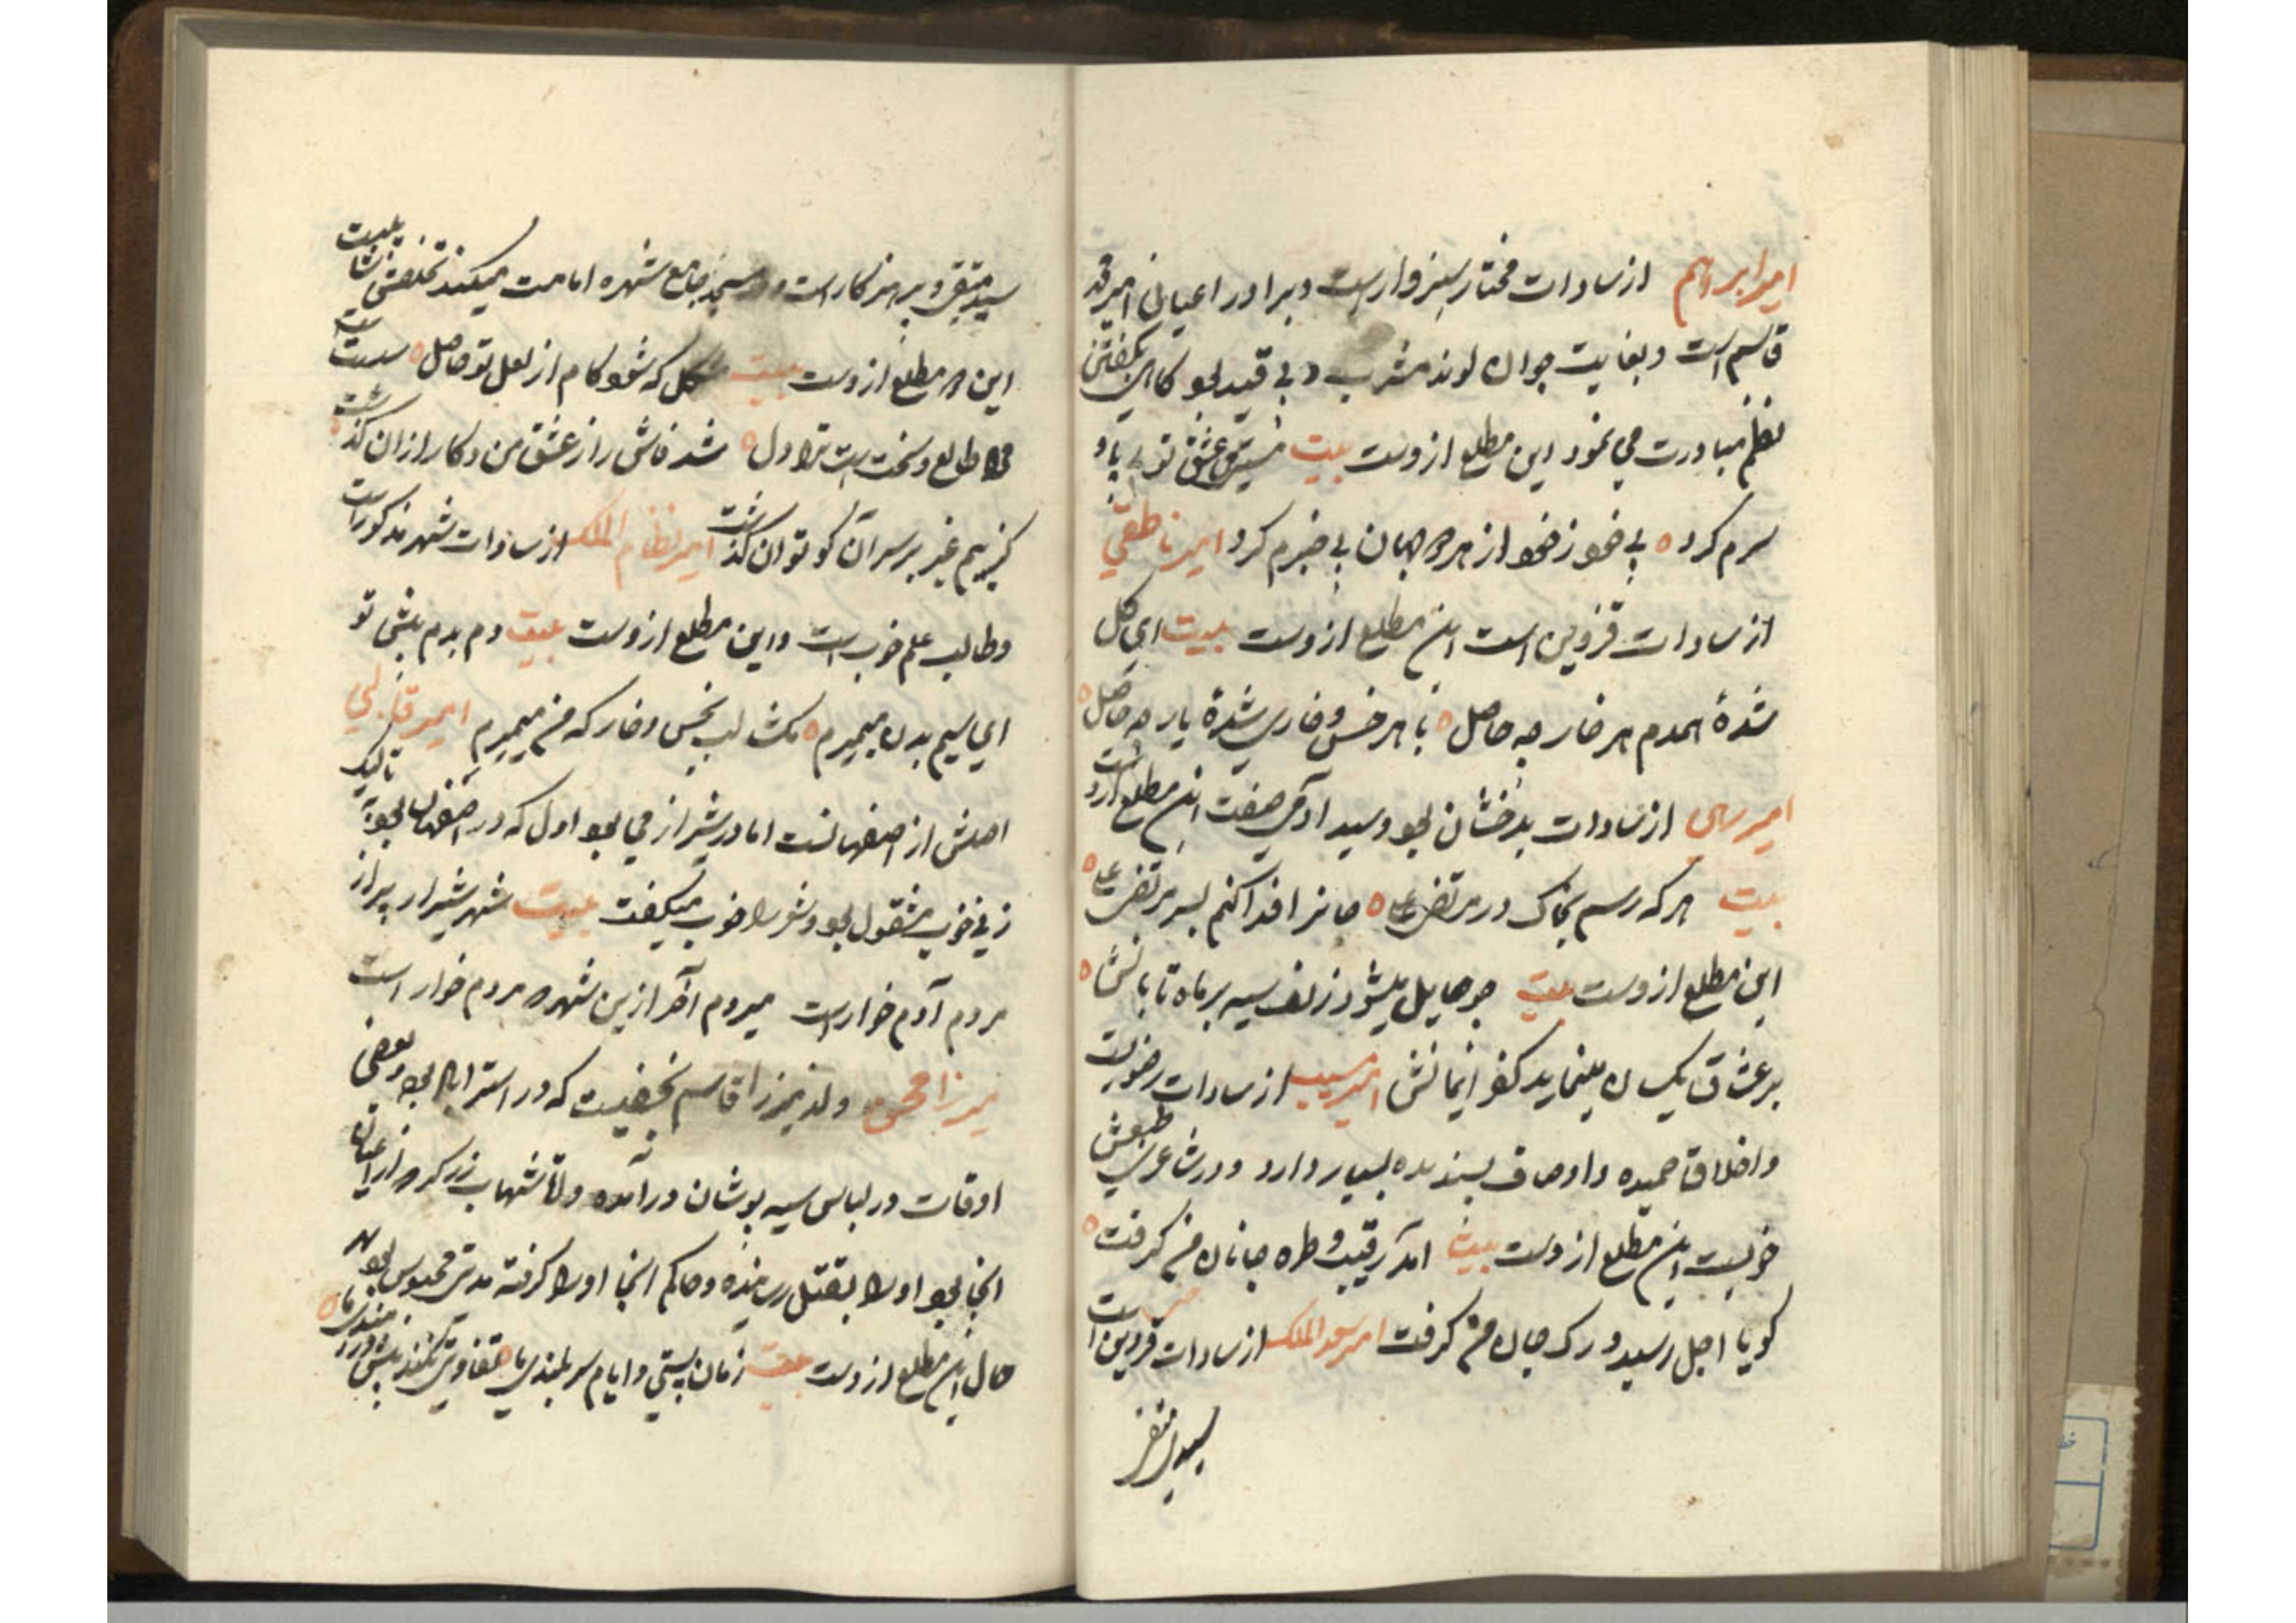 امیر ابراهیم از سادات مختار سبزوارست و برادر اعیانی امیر محمد
قاسم است و بغایت جوان لوند مشرب و بی قید بود کاهی بکفتن
نظم مبادرت می نمود این مطلع ازوست بیت عشق تو بی پا و
سرم کرد بی خود ز خود از هر دو جهان بی خبرم کرد امیر ناطقی
از سادات قزوین است این مطلع ازوست بیت ای کل
شدهٔ همدم هر خار چه حاصل با هر خس و خاری شدهٔ یار چه حاصل
امیر رسمی از سادات بدخشان بود و سید آدمی صفت این مطلع ازوست
بیت هر که رسم بخاک در مرتضی علی جانرا فدا کنم بسر مرتضی علی
این مطلع ازوست بیت چو حایل میشود زلف سیه بر ماه تابانش
بر عشاق یکسان مینماید کفر ایمانش امیر از سادات رضویت
و اخلاق حمیده و اوصاف پسندیده بسیار دارد و در شاعری طبعش
خوبست این مطلع ازوست بیت آمد رقیب و طره جانان من کرفت
کویا اجل رسید و رک جان من کرفت امیر سعد الملک از سادات قزوین است
سید متقی
سید متقی و پرهیزکارست و در مسجد جامع شهره امامت میکند تخلصش
این دو مطلع ازوست بیت مشکل که شود کام از لعل تو حاصل
طالع و سختست ترا دل شد فاش راز عشق من و کار از ان کذشت
کیرم غیر بر سر آن کو توان کذشت امیر نظام الملک از سادات شهر مذکور است
و طالب علم خوب است و این مطلع ازوست بیت دم بدم پیش تو
ای سیم بدن میمیرم مکشا لب بخس و خار که من میمیرم امیر قالبی
اصلش از اصفهانست اما در شیراز می بود اول که در اصفهان بود به
زنی خوب مشغول بود و شعر را خوب میکفت بیت شهر شیراز پر از
مردم آدم خوارست میروم آخر ازین شهر که مردم خوار است
میرزا محسن ولد میرزا قاسم نخفیست که در استراباد بوده و بعضی
اوقات در لباس سیه پوشان در آمده و ملا شهاب زرکر که از اعیان
انجا بود او را بقتل رسانیده و حاکم انجا او را کرفته مدتی محبوس بود
حال این مطلع ازوست بیت زمان پستی و ایام سر بلندی ما تفاوتی نکند پیش